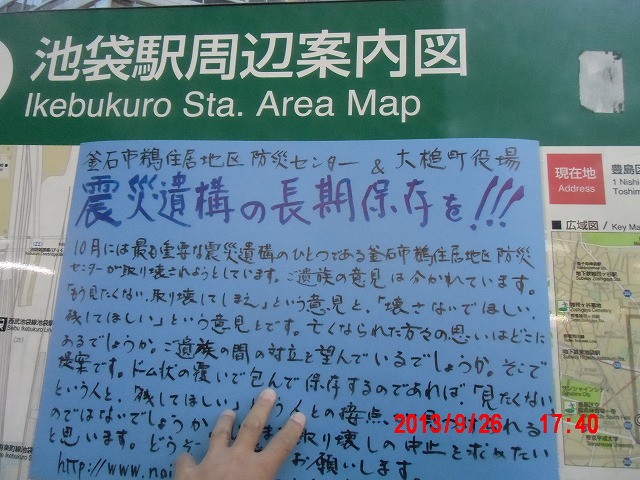 池袋駅周辺案内図
Ikebukuro Sta. Area Map
釜石市鵜住居地区防災センター & 大槌町役場
震災遺構の長期保存を!!!
10月には最も重要な震災遺構のひとつである釜石市鵜住居地区防災
センターが取り壊されようとしています。ご遺族の意見は分かれています。
「もう見たくない、取り壊してしまえ」という意見と、「壊さないでほしい
残してほしい」という意見とです。亡くなられた方々の思いはどこに
あるでしょうか。ご遺族の間の対立を望んでいるでしょうか。そこで
提案です。ドーム状の覆いで包んで保存するのであれば、「見たくない
という人と、残してほしい」 う人との接点、
のではないでしょうか
と思います。どうぞ 取り壊しの中止を求めたい
http://www.nai お願いします。
現在地
Address
豊島区
1 Nishi-
Toshima
広域図 / Key Ma
2013/9/26 17:40